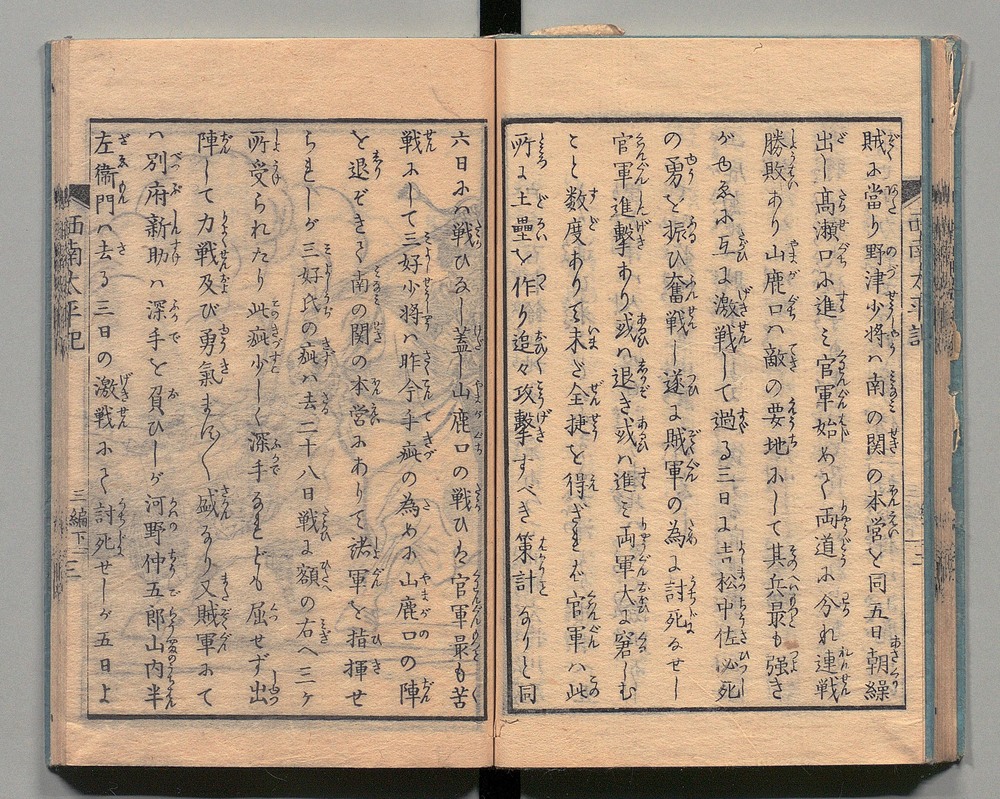 賊に當り野津少将ハ南の関の本営を同五日朝繰
出し髙瀬口に進ミ官軍始めて両道に分れ連戦
勝敗あり山鹿口ハ敵の要地にして其兵最も強き
がゆゑに互に激戦して過る三日に吉松中佐必死
の勇を振ひ奮戦し遂に賊軍の為に討死なせし
官軍進撃あり或ハ退き或ハ進ミ両軍大に窘しむ
こと数度ありて未だ全捷を得ざれバ官軍ハ此
所に土壘を作り追々攻撃すべき策計なりと同
六日にハ戦ひなし蓋し山鹿口の戦ひハ官軍最も苦
戦にして三好少将ハ昨今手疵の為めに山鹿口の陣
を退ぞきて南の関の本営にありて諸軍を指揮せ
られしが三好氏の疵ハ去二十八日戦に額の右へ三ヶ
所受られたり此疵少しく深手なれども屈せず出
陣して力戦及び勇氣ます〱盛なり又賊軍にて
ハ別府新助ハ深手を負ひしが河野仲五郎山内半
左衞門ハ去る三日の激戦にて討死せしが五日よ
西南太平記
三編下 三